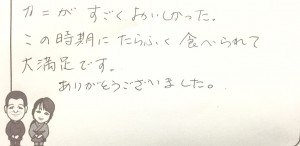 カニが すごくおいしかった。
この時期にたらふく食べられて
大満足です。
ありがとうございました。